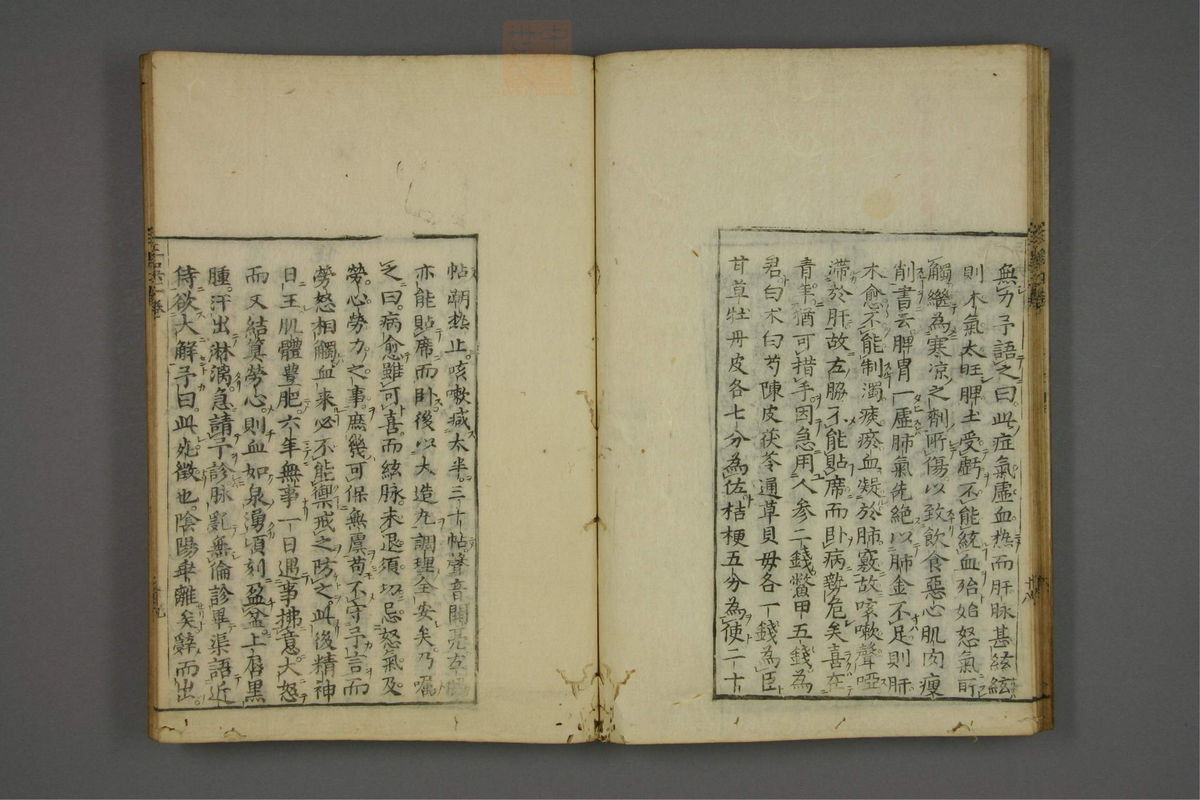 無力予語之曰此症氣虛血熱而肝脉甚絃絃
則木氣太旺脾土受虧不能統血殆始怒氣所
觸繼為寒凉之劑所傷以致飲食惡心肌肉痩
削書云脾胃一虛肺氣先絶以肺金不足則肝
木愈不能制濁痰瘀血凝於肺竅故咳嗽聲啞
滞於肝故左脇不能貼席而卧病勢危矣喜在
青年猶可措手因急用人参二錢鱉甲五錢為
君白术白芍陳皮茯苓通草貝毋各一錢為臣
甘草牡丹皮各七分為佐桔梗五分為使二十
帖潮熱止咳嗽减太半三十帖聲音開亮左
亦能貼席而卧後以大造丸調理全安矣乃囑
之曰病愈雖可喜而絃脉未退須切忌怒氣及
勞心勞力之事庶幾可保無虞苟不守予言而
勞怒相觸血来必不能禦戒之防之此後精神
日王肌體豊肥六年無事一日遇事拂意大怒
而又結算勞心則血如泉湧頃刻盈盆上唇黒
腫汗出淋漓急請予診脉乱無倫診畢渠語近
侍欲大解予曰此死徵也陰陽乖離矣辭而出